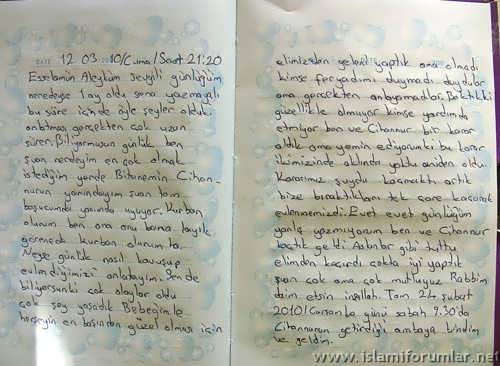 12 03 2010/Cuma/Saat 21:20
Esselamün Aleyküm Sevgili günlüğüm
neredeyse 1 ay oldu sana yazmayalı
bu süre içinde öyle şeyler oldu ki
anlatması gerçekten çok uzun
sürer. Biliyormusun günlük ben
şuan neredeyim en çok olmak
istediğim yerde Bitanemin Cihan-
nurun yanındayım şuan tam
başucumda yanımda uyuyor. Kurban
olurum ben ona onu bana layık
görenede kurban olurum ta.
Neyse günlük nasıl kavuşup
evlendiğimizi anlatayım. Sen de
biliyorsunki çok olaylar oldu
çok şey yaşadık Bebeğimle
herşeyin en başından güzel olması için
elimizden geleni yaptık ama olmadı
kimse feryadımı duymadı duydular
ama gerçekten anlayamadılar. Baktıkki
güzellikle olmuyor kimse yardımda
etmiyor ben ve Cihannur bir karar
aldık ama yemin ediyorumki bu karar
ikimizinde aklında yoktu aniden oldu.
Kararımız şuydu kaçmaktı artık
bize bıraktıkları tek çare kaçarak
evlenmemizdi. Evet evet günlüğüm
yanlış yazmıyorum ben ve Cihannur
kaçtık geldi Aslanlar gibi tuttu
elimden kaçırdı çokta iyi yaptık
şuan çok ama çok mutluyuz Rabbim
daim etsin inşallah. Tam 24 şubat
2010/Çarşamba günü sabah 9.30'da
Cihannurun getirdiği arabaya bindim
ve geldim.
www.islamiforumlar.net